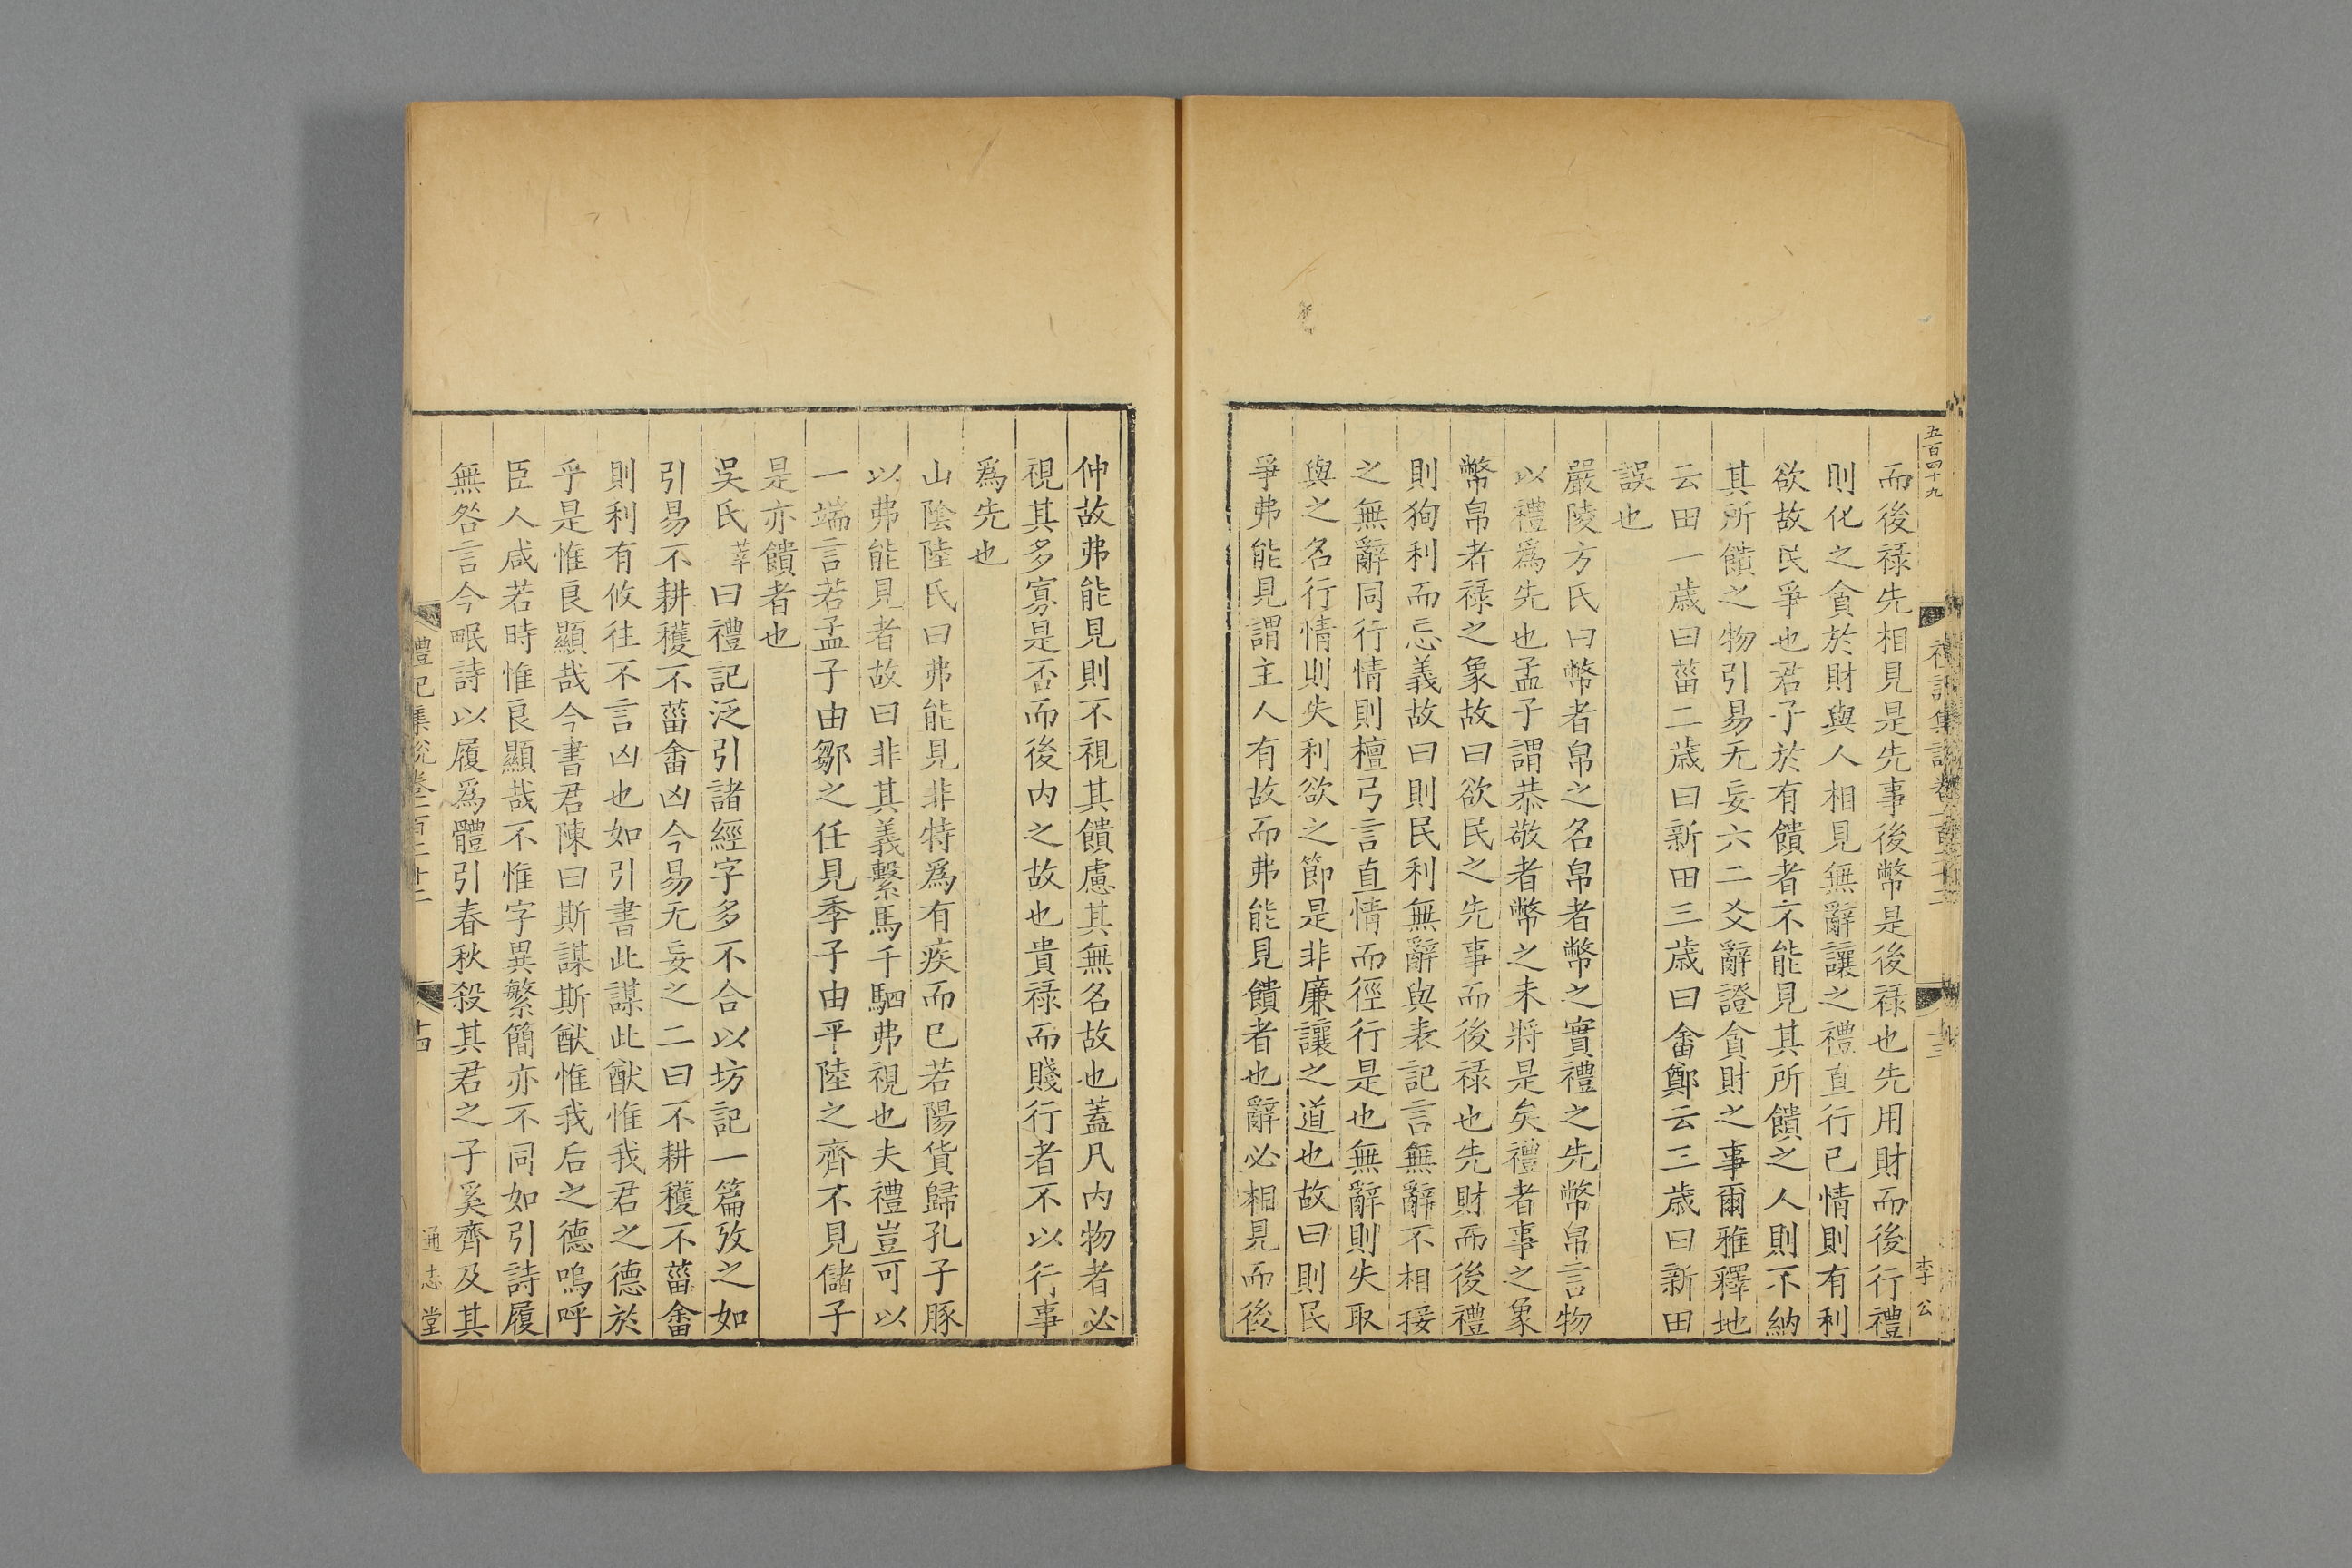 五百四十九
李公
而後禄先相見是先事後幣是後禄也先用財而後行禮
則化之貪於財與人相見無辭讓之禮直行已情則有利
欲故民爭也君子於有饋者不能見其所饋之人則不納
其所饋之物引易无妄六二爻辭證貪財之事爾雅釋地
云田一歳曰菑二歳曰新田三歳曰畬鄭云三歳曰新田
誤也
嚴陵方氏曰幣者帛之名帛者幣之實禮之先幣帛言物
以禮爲先也孟子謂恭敬者幣之未將是矣禮者事之象
幣帛者禄之象故曰欲民之先事而後禄也先財而後禮
則狥利而忘義故曰則民利無辭與表記言無辭不相接
之無辭同行情則檀弓言直情而徑行是也無辭則失取
與之名行情則失利欲之節是非廉讓之道也故曰則民
爭弗能見謂主人有故而弗能見饋者也辭必相見而後
仲故弗能見則不視其饋慮其無名故也蓋凡内物者必
視其多寡是否而後内之故也貴禄而賤行者不以行事
爲先也
山陰陸氏曰弗能見非特爲有疾而已若陽貨歸孔子豚
以弗能見者故曰非其義繫馬千駟弗視也夫禮豈可以
一端言若孟子由鄒之任見季子由平陸之齊不見儲子
是亦饋者也
吳氏莘曰禮記泛引諸經字多不合以坊記一篇攷之如
引易不耕穫不菑畬凶今易无妄之二曰不耕穫不菑畬
則利有攸往不言凶也如引書此謀此猷惟我君之德於
乎是惟良顯哉今書君陳曰斯謀斯猷惟我后之德嗚呼
臣人咸若時惟良顯哉不惟字異繁簡亦不同如引詩履
無咎言今䀮詩以履爲體引春秋殺其君之子奚齊及其
禮記集說卷一百二十二
十四
通志堂